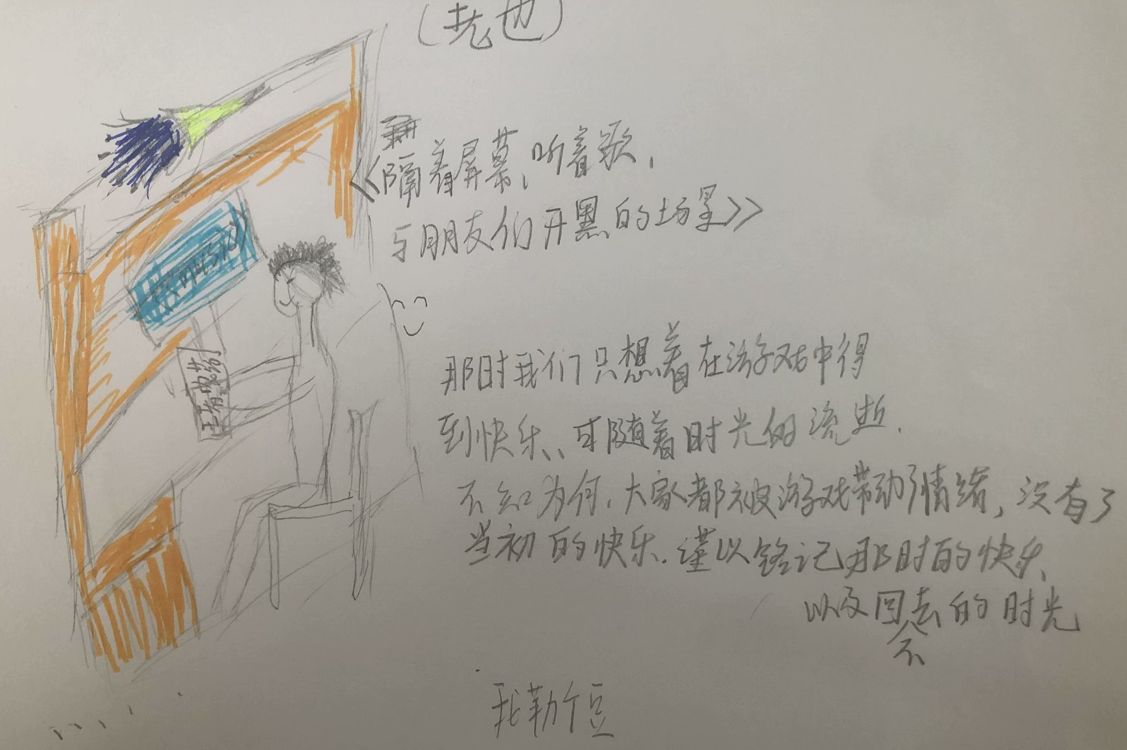 (老也)
《隔着屏幕,听着歌,
与朋友们开黑的场景》
王者荣耀
那时我们只想着在游戏中得
到快乐、可随着时光的流逝.
不知为何,大家都被游戏带动了情绪,没有了
当初的快乐.谨以铭记那时的快乐、
以及回不去的时光
我勒个豆